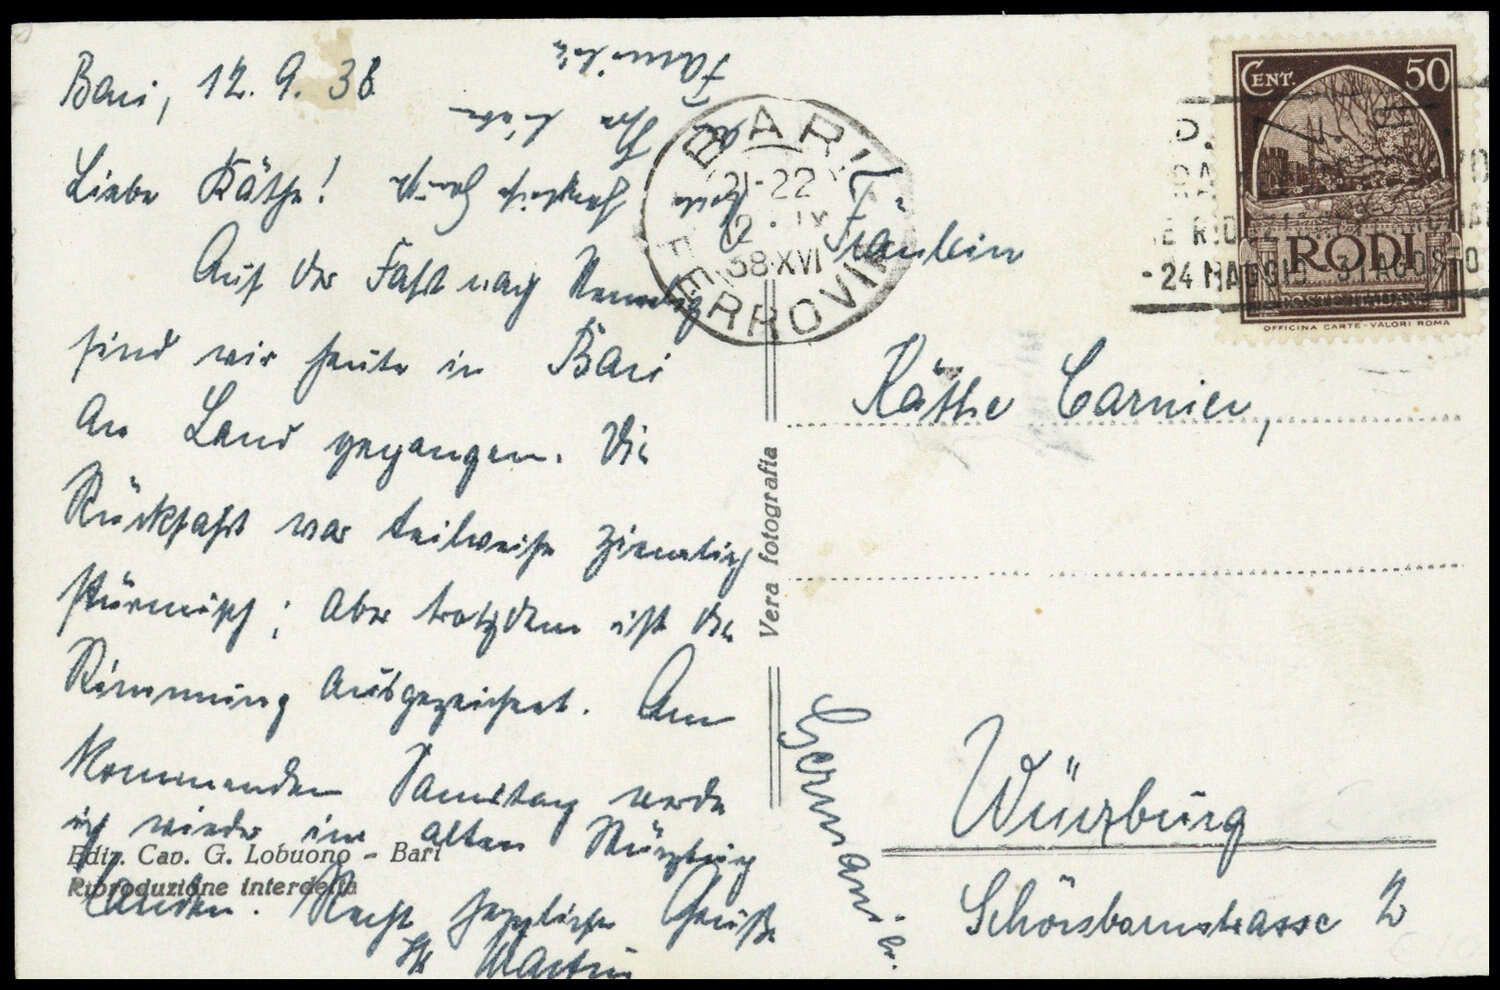 Bari, 12. 9. 38
Liebe Käthe!
Auf der Fahrt nach Venedig
sind wir heute in Bari
an Land gegangen. Die
Rückfahrt war teilweise ziemlich
stürmisch; aber trotzdem ist die
Stimmung ausgezeichnet. Am
kommenden Samstag werde
ich wieder im alten Würzburg
landen. Recht herzliche Grüße
Ihr Martin
herzliche Grüße
an Ihre liebe
Familie
Ediz. Cav. G. Lobuono - Bari
Riproduzione interdetta
Vera fotografia
BARI
21-22
12 · IX
38·XVI
FERROVIA
CENT. 50
RODI
OFFICINA CARTE-VALORI ROMA
-24 MAGGIO 31 AGOSTO
Fräulein
Käthe Carnier,
Würzburg
Schönbornstrasse 2
Germania.